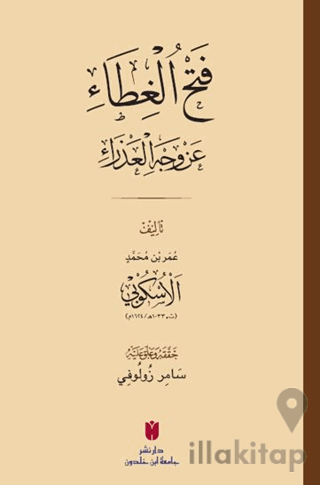 فَتْحُ الْغِطَاءِ
عَنْ وَجْهِ الْعَذْرَاءِ
تَأْلِيفُ
عُمَر بْن مُحَمَّدٍ
الْأُسْكُوبِيّ
(ت ١٠٣٣هـ/١٦٢٤م)
حَقَّقَهُ وَعَلَّقَ عَلَيْهِ
سَامِر زُولُوفِي
دار نشر
جامعة ابن خلدون
illakitap